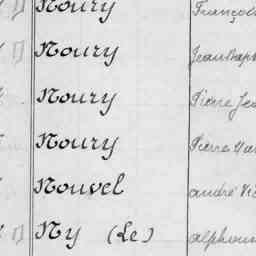 Noury François
Noury Jean Bapt
Noury Pierre Je
Noury Pierre Ma
Nouvel André Vi
Ny (Le) Alphons